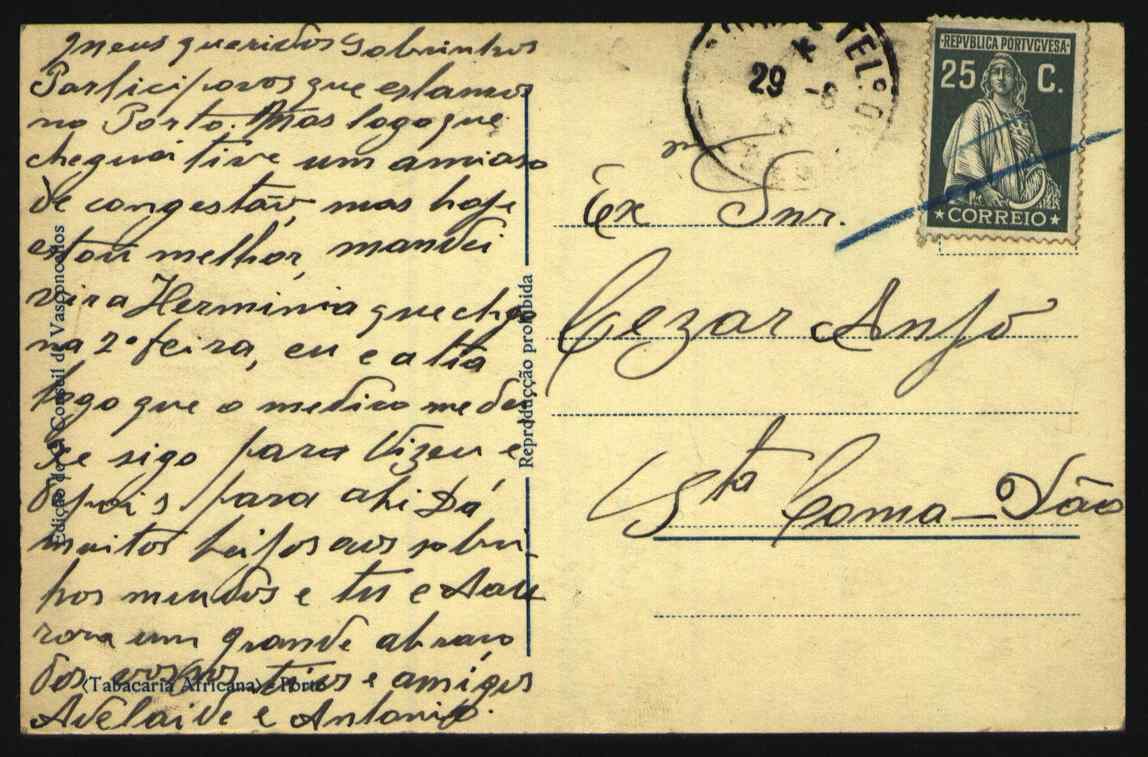 Meus queridos sobrinhos
Participovos que estamos
no Porto. Mas logo que
cheguei tive um amiaso
de congestão, mas hoje
estou melhor, mandei
vir a Herminia que chega
na 2ª feira, eu e a tia
logo que o medico me dei
xe sigo para Vizeu e
depois para ahi Dá
muitos beijos aos sobri
nhos meudos e tu e Aau
rora um grande abraço
dos vossos tios e amigos
Adelaide e Antonio.
Edição de O Consul de Vasconcellos
(Tabacaria Africana) - Porto
Reproducção prohibida
29 - 8
REPVBLICA PORTVGVESA
25 C.
CORREIO
Ex Snr.
Cezar Anjo
Sta Coma-Dão